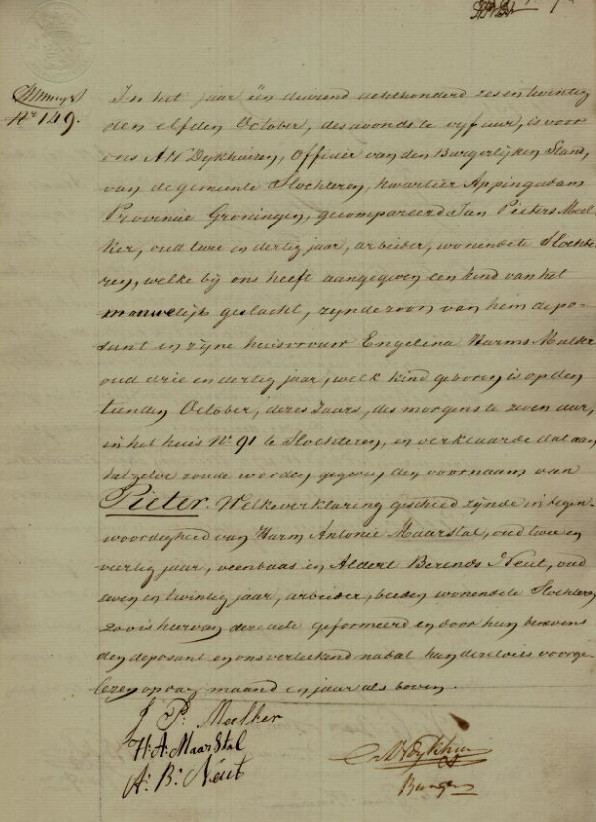 No 149.
In het jaar een duizend achthonderd zes en twintig
den elfden October, des avonds te vyf uur, is voor
ons A H Dykhuizen, Officier van den Burgerlyken Stand,
van de gemeente Slochteren, kwartier Appingadam
Provincie Groningen, gecompareerd Jan Pieters Meel
ker, oud twee en dertig jaar, arbeider, wonende te Slochte
ren, welke by ons heeft aangegeven een kind van het
manwelyk geslacht, zynde zoon van hem depo-
sant en zyne huisvrouw Engelina Harms Mulder
oud drie en dertig jaar, welk kind geboren is op den
tienden October, dezes Jaars, des morgens te zeven uur,
in het huis No 91 te Slochteren, en verklaarde dat aan
hetzelve zoude worden gegeven den voornaam van
Pieter. Welke verklaring geschied zynde in tegen-
woordigheid van Harm Antonie Maarstal, oud twee en
veertig jaar, veenbaas en Aldert Berends Neut, oud
zeven en twintig jaar, arbeider, beiden wonende te Slochteren
zoo is hiervan deze acte geformeerd en door hun benevens
den deposant en ons verteekend na dat hun dezelve is voorge-
lezen op dag maand en jaar als boven.
J P. Meelker
H. A. Maarstal
A. B. Neut